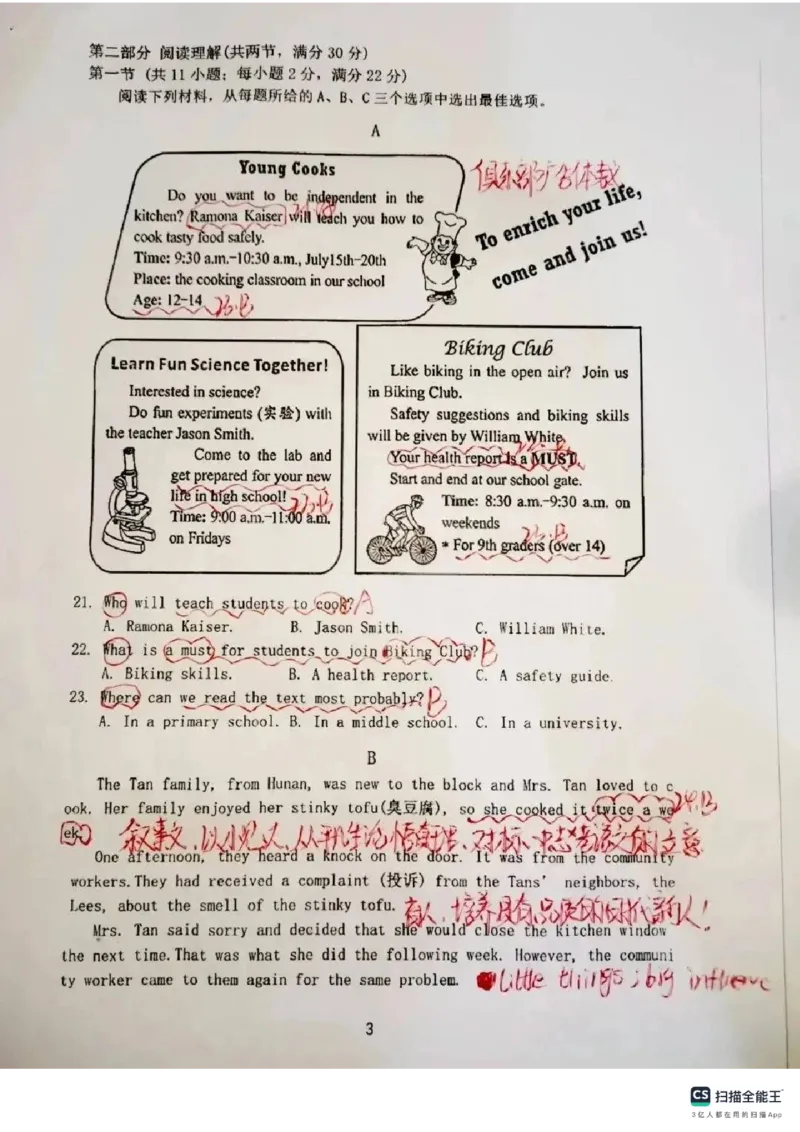 第二部分 阅读理解(共两节，满分 30 分)
第一节 (共 11 小题；每小题 2 分，满分 22 分)
阅读下列材料，从每题所给的 A、B、C 三个选项中选出最佳选项。
A
Young Cooks
Do you want to be independent in the
kitchen? Ramona Kaiser will teach you how to
cook tasty food safely.
Time: 9:30 a.m.-10:30 a.m., July15th-20th
Place: the cooking classroom in our school
Age: 12-14 23.B
俱乐部广告体裁
To enrich your life,
come and join us!
Learn Fun Science Together!
Interested in science?
Do fun experiments (实验) with
the teacher Jason Smith.
Come to the lab and
get prepared for your new
life in high school! 23.B
Time: 9:00 a.m.-11:00 a.m.
on Fridays
Biking Club
Like biking in the open air? Join us
in Biking Club.
Safety suggestions and biking skills
will be given by William White.
Your health report is a MUST.
Start and end at our school gate.
Time: 8:30 a.m.-9:30 a.m. on
weekends
23.B
* For 9th graders (over 14)
21. Who will teach students to cook? A
A. Ramona Kaiser. B. Jason Smith. C. William White.
22. What is a must for students to join Biking Club? B
A. Biking skills. B. A health report. C. A safety guide.
23. Where can we read the text most probably? B
A. In a primary school. B. In a middle school. C. In a university.
B
The Tan family, from Hunan, was new to the block and Mrs. Tan loved to c
ook. Her family enjoyed her stinky tofu(臭豆腐), so she cooked it twice a we 24.B
ek.
One afternoon, they heard a knock on the door. It was from the community
workers. They had received a complaint (投诉) from the Tans' neighbors, the
Lees, about the smell of the stinky tofu.
Mrs. Tan said sorry and decided that she would close the kitchen window
the next time. That was what she did the following week. However, the communi
ty worker came to them again for the same problem. Little things, big influence
3
CS 扫描全能王
3亿人都在用的扫描App